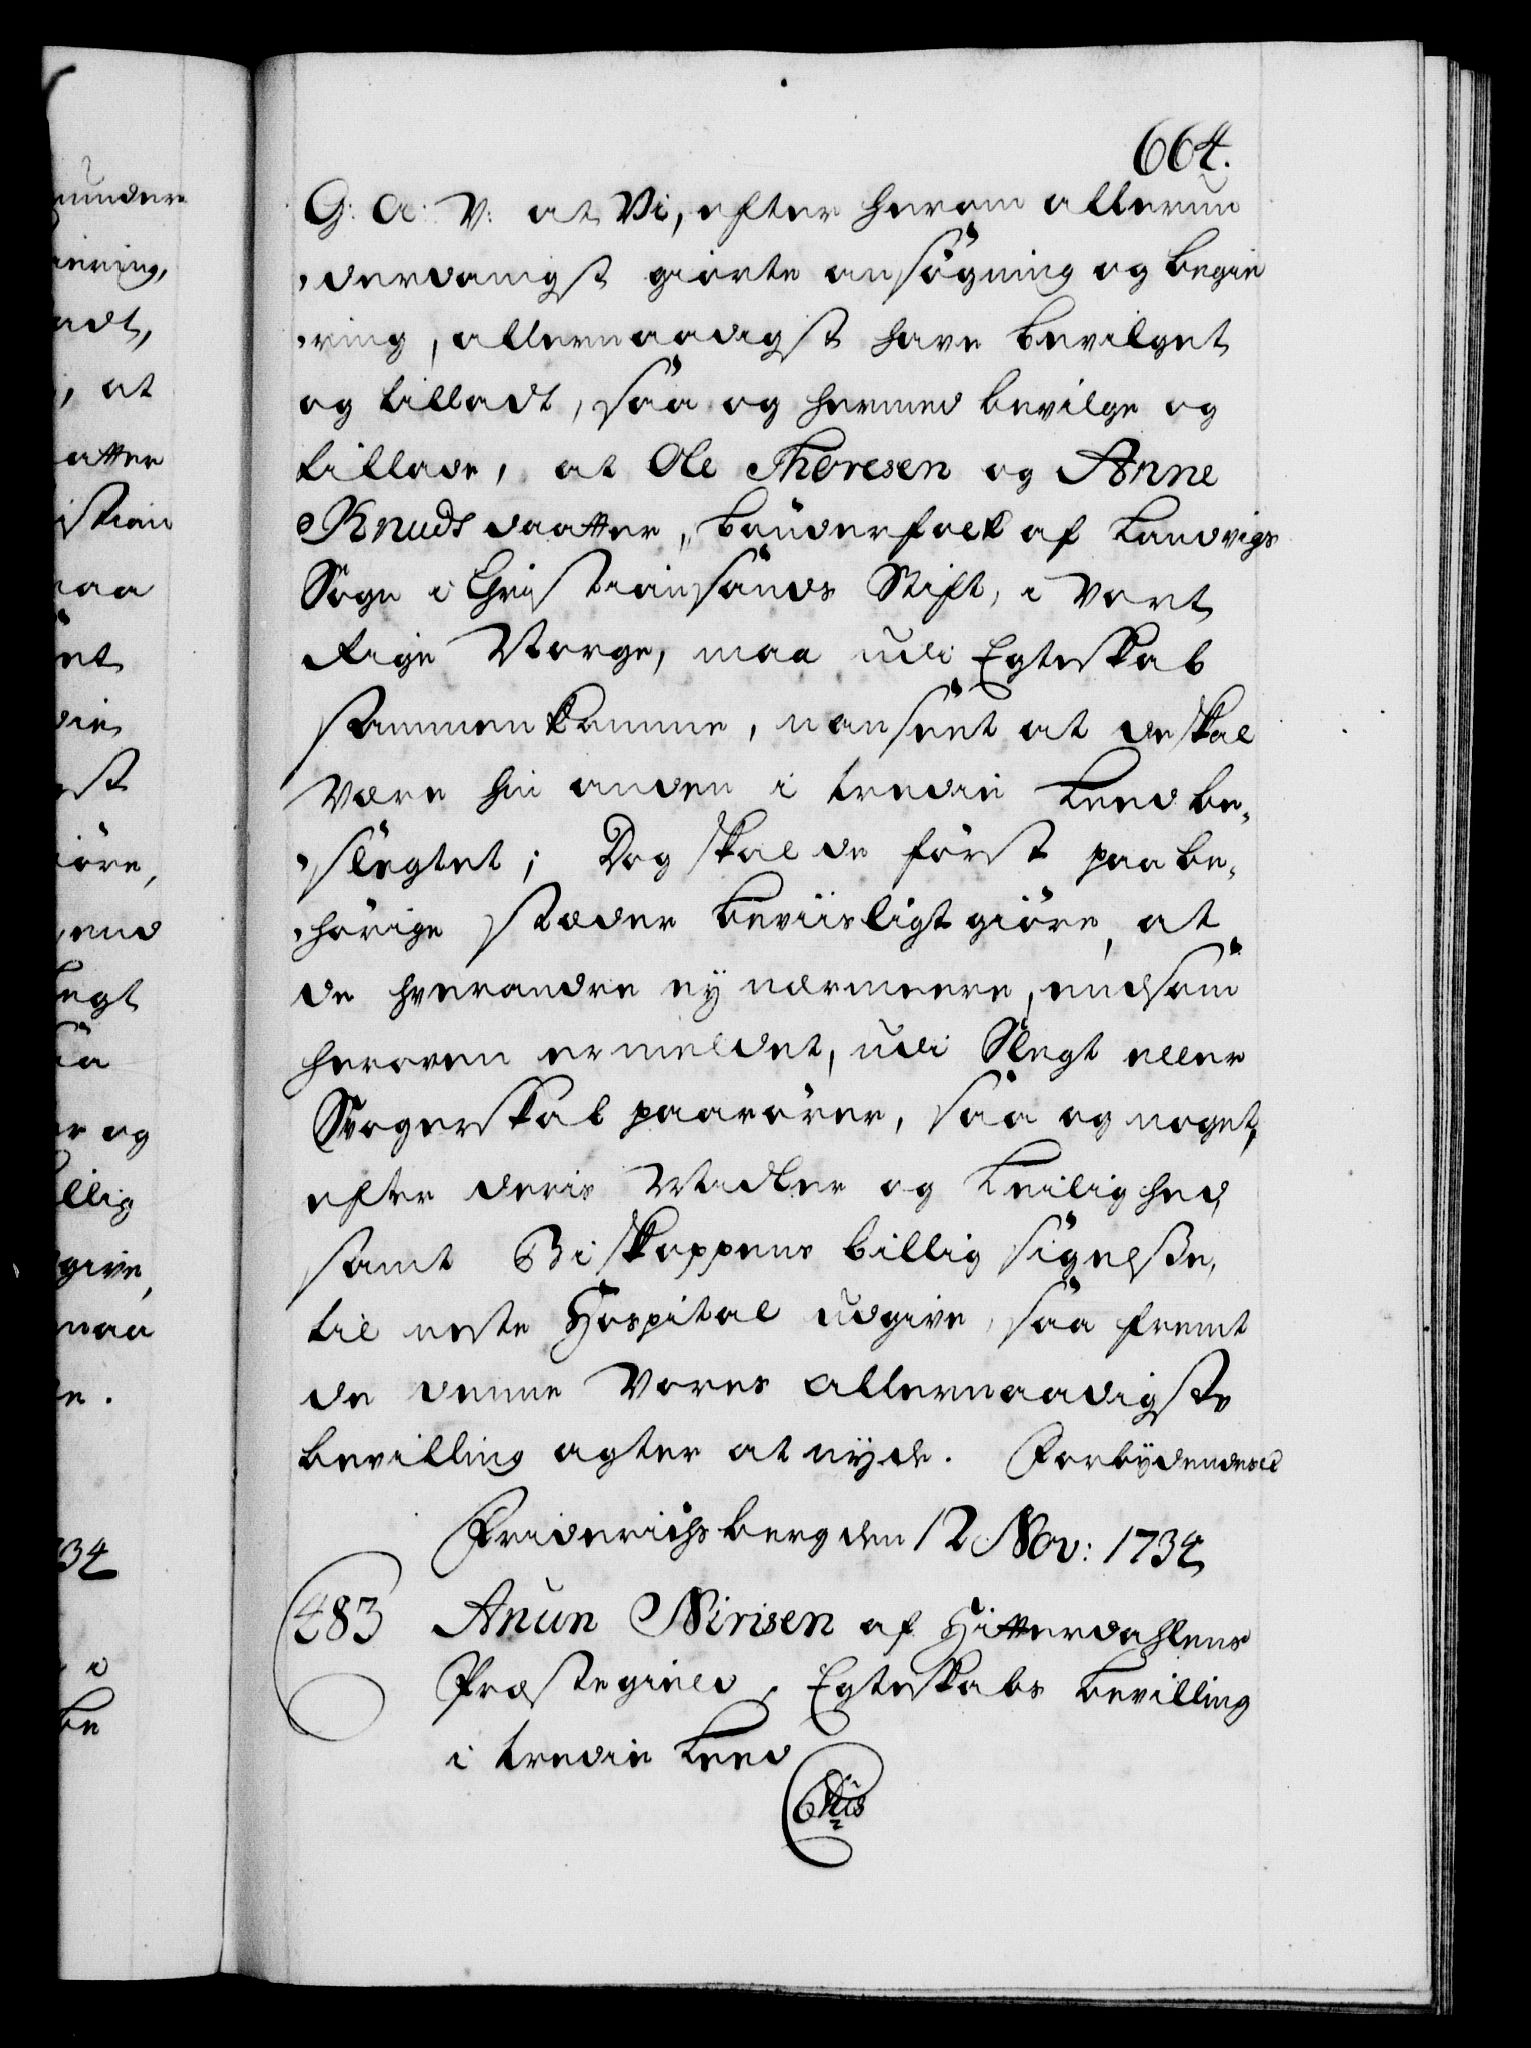 664.
G: A: V: at Vi, efter herom allerun
derdanigst giorte ansøgning og begie
ring, allernaadigst have bevilget
og tilladt, saa og hermed bevilge og
tillade, at Ole Thoresen og Anne
Knuds daatter, bønderfolk af Landvigs
Sogn i Christiansands Stift, i Vort
Rige Norge, maa udi Egteskab
sammenkomme, uanseet at de skal
være hin anden i tredie Leed be-
slegtet; Dog skal de først paa be-
hørige stæder beviisligt giøre, at
de hverandre ej nærmeere, end som
heroven ermeldet, udi Slegt eller
Svogerskab paarører, saa og noget,
efter deris Midler og Leilighed,
samt Biskoppens billig sigelse,
til neste Hospital udgive, saa fremt
de denne Vores allernaadigste
bevilling agter at nyde. Forbydendes
Friderichsberg den 12 Nov: 1734
483 Anun Nirisen af Hitterdahlens
Præstegield, Egteskabs bevilling
i tredie Leed